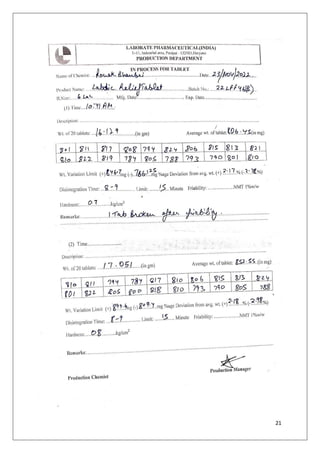 LABORATE PHARMACEUTICAL(INDIA)
PRODUCTION DEPARTMENT
IN PROCESS FOR TABLET
Name of Chemist: Date: 23/Nov/2022
Product Name: Labdic Relief Tablet Batch No.: 22LFF4
B.Size: 6 Lac Mfg. Date Exp. Date
(1) Time: 10:47 AM
Description:
Wt. of 20 tablets: 16.129 (in gm) Average wt. of tablet: 806.45 (in mg)
801 811 817 808 784 824 806 815 813 821
810 822 819 784 805 788 793 790 801 810
Wt. Variation Limit (+) mg (-) mg %age Deviation from avg. wt. (+) 2.17 % (-) %
Disintegration Time: 8-9 Limit: 15 Minute Friability: NMT 1%w/w
Hardness: 07 kg/cm²
Remarks: 1 Tab broken after friability.
(2) Time
Description:
Wt. of 20 tablets: 17.051 (in gm) Average wt. of tablet: 852.55 (in mg)
810 811 794 784 817 810 806 815 813 824
801 822 805 800 818 810 793 790 805 788
Wt. Variation Limit (+) mg (-) mg %age Deviation from avg. wt. (+) 2.18 % (-) 2.98 %
Disintegration Time: 8-9 Limit: 15 Minute Friability: NMT 1%w/w
Hardness: 08 kg/cm²
Remarks:
Production Chemist Production Manager
21